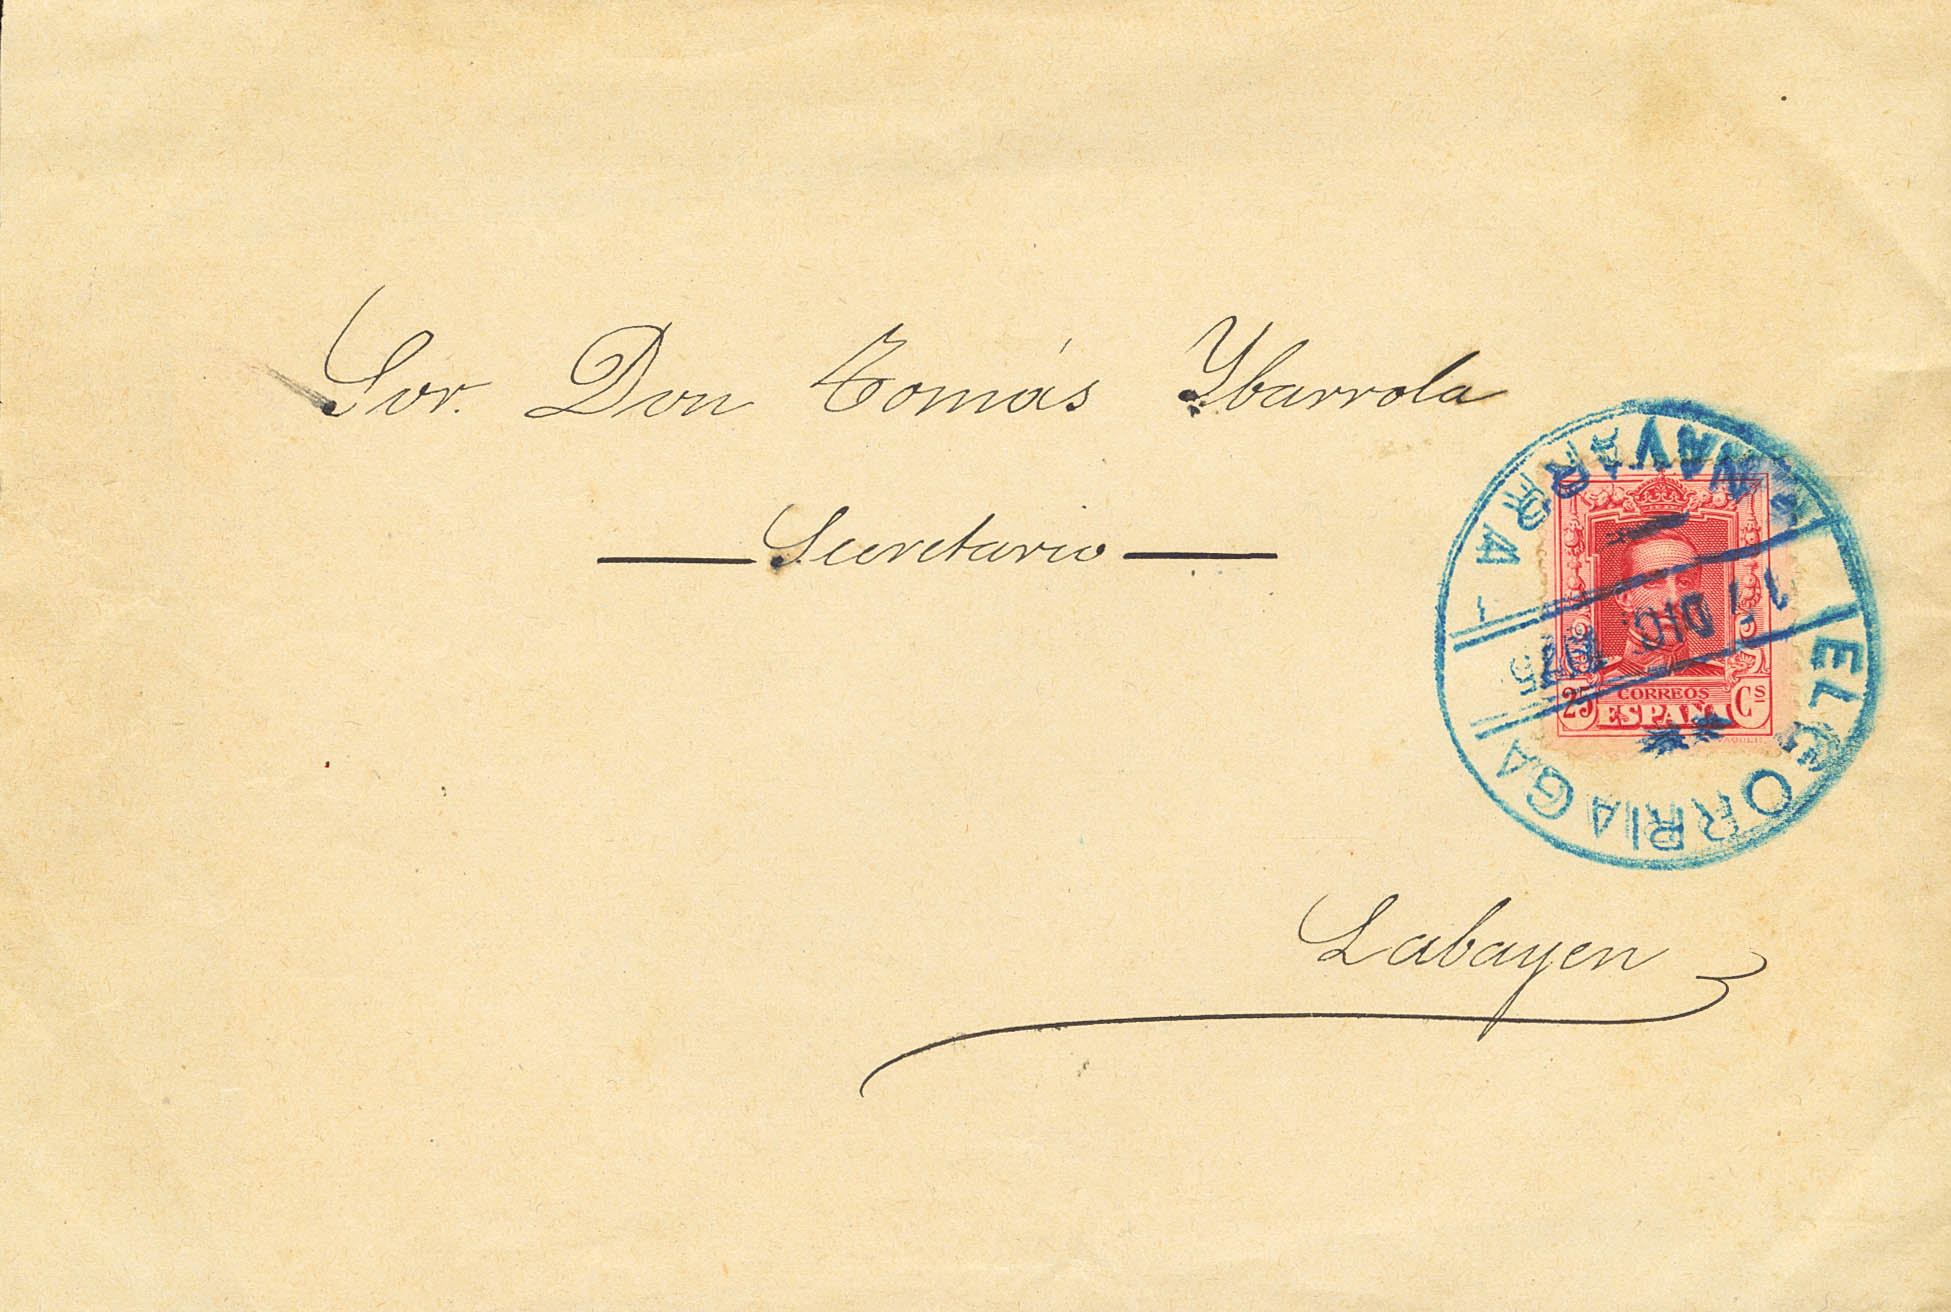 Sor. Don Tomás Ybarrola
— Secretario —
Labayen
ELGORRIAGA
NAVARRA
DIC.
25 CORREOS Cs
ESPAÑA